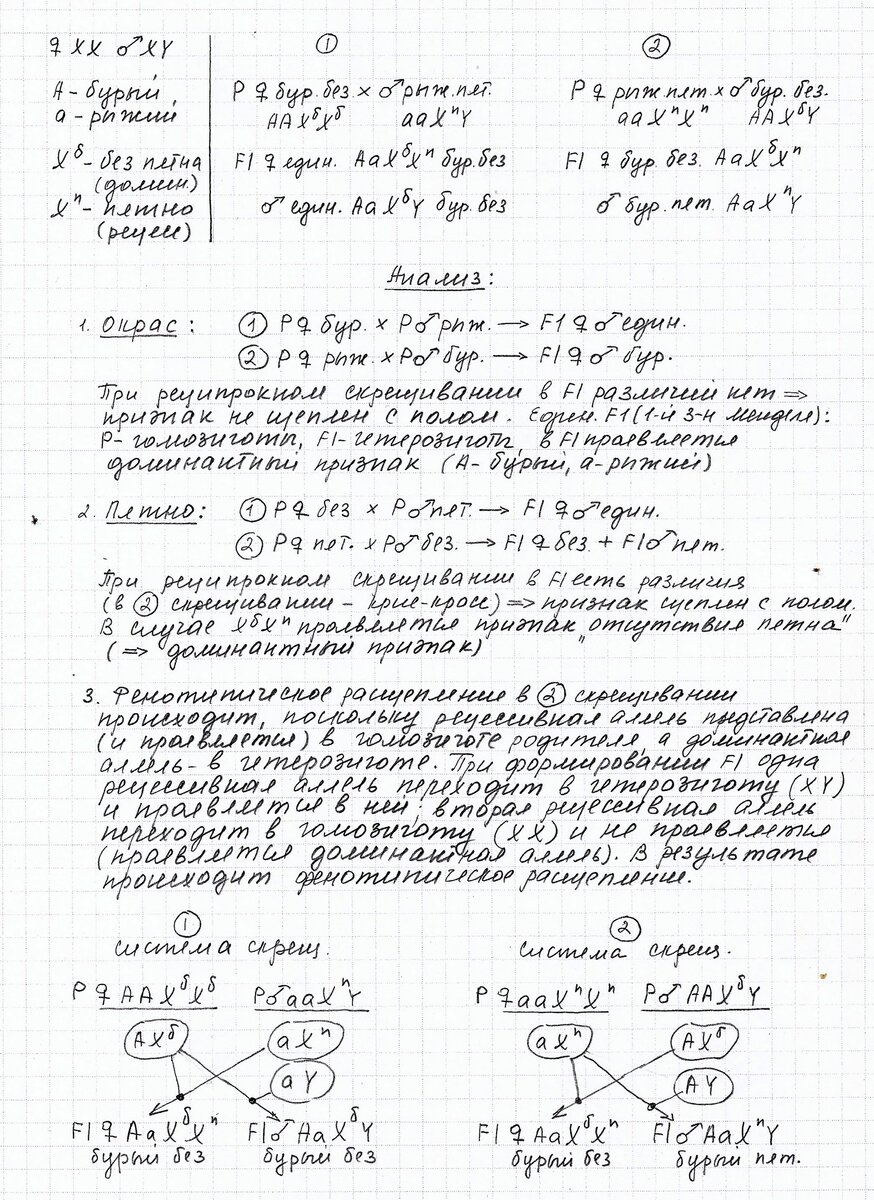 ♀ XX ♂ XY
А - бурый,
а - рыжий
Xᵟ - без пятна
(домин)
Xⁿ - пятно
(рецесс)
①
P ♀ бур. без. × ♂ рыж. пят.
AA XᵟXᵟ aa XⁿY
F1 ♀ един. Aa XᵟXⁿ бур. без
♂ един. Aa XᵟY бур. без
②
P ♀ рыж. пят. × ♂ бур. без.
aa XⁿXⁿ AA XᵟY
F1 ♀ бур. без. Aa XᵟXⁿ
♂ бур. пят. Aa XⁿY
Анализ:
1. Окрас: ① P ♀ бур. × P ♂ рыж. → F1 ♀ ♂ един.
② P ♀ рыж. × P ♂ бур. → F1 ♀ ♂ бур.
При реципрокном скрещивании в F1 различий нет ⇒
признак не сцеплен с полом. Един. F1 (1-й З-н Менделя):
P - гомозиготы, F1 - гетерозиготы, в F1 проявляется
доминантный признак (А - бурый, а - рыжий)
2. Пятно: ① P ♀ без × P ♂ пят. → F1 ♀ ♂ един.
② P ♀ пят. × P ♂ без. → F1 ♀ без. + F1 ♂ пят.
При реципрокном скрещивании в F1 есть различия
(в ② скрещивании - крис-кросс) ⇒ признак сцеплен с полом.
В случае XᵟXⁿ проявляется признак "отсутствия пятна"
(⇒ доминантный признак)
3. Фенотипическое расщепление в ② скрещивании
происходит, поскольку рецессивная аллель представлена
(и проявляется) в гомозиготе родителя, а доминантная
аллель - в гетерозиготе. При формировании F1 одна
рецессивная аллель переходит в гетерозиготу (XY)
и проявляется в ней; вторая рецессивная аллель
переходит в гомозиготу (XX) и не проявляется
(проявляется доминантная аллель). В результате
происходит фенотипическое расщепление.
①
система скрещ.
P ♀ AA XᵟXᵟ P ♂ aa XⁿY
AXᵟ aXⁿ
aY
F1 ♀ Aa XᵟXⁿ F1 ♂ Aa XᵟY
бурый без бурый без
②
система скрещ.
P ♀ aa XⁿXⁿ P ♂ AA XᵟY
aXⁿ AXᵟ
AY
F1 ♀ Aa XᵟXⁿ F1 ♂ Aa XⁿY
бурый без бурый пят.